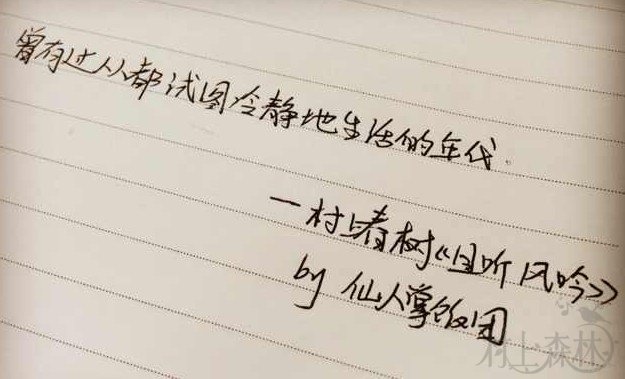 曾有过人人都试图冷静地生活的年代。
一村上春树《且听风吟》
by 仙人掌饭团
村上森林